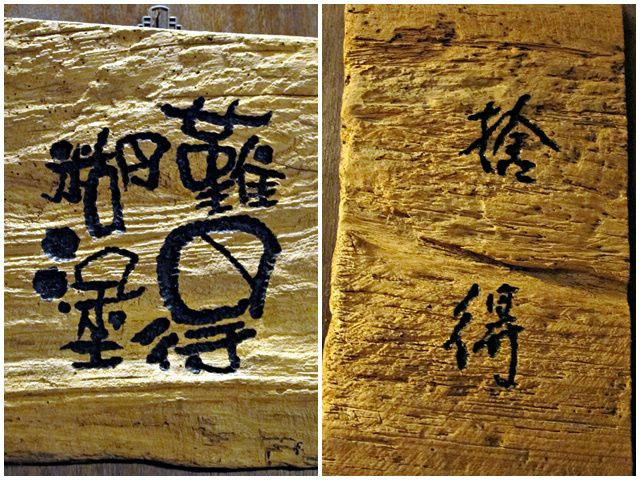 難得
糊塗
捨得